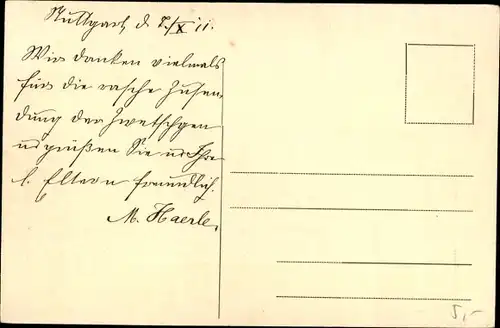 Stuttgart, d. 7./X 11.
Wir danken vielmals
für die rasche Zusen-
dung der Zwetschgen
u. grüßen Sie u. Ihre
l. Eltern freundlich.
M. Haerle.
5,-